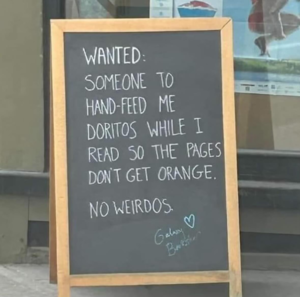 WANTED:
SOMEONE TO
HAND-FEED ME
DORITOS WHILE I
READ SO THE PAGES
DON'T GET ORANGE.
NO WEIRDOS.